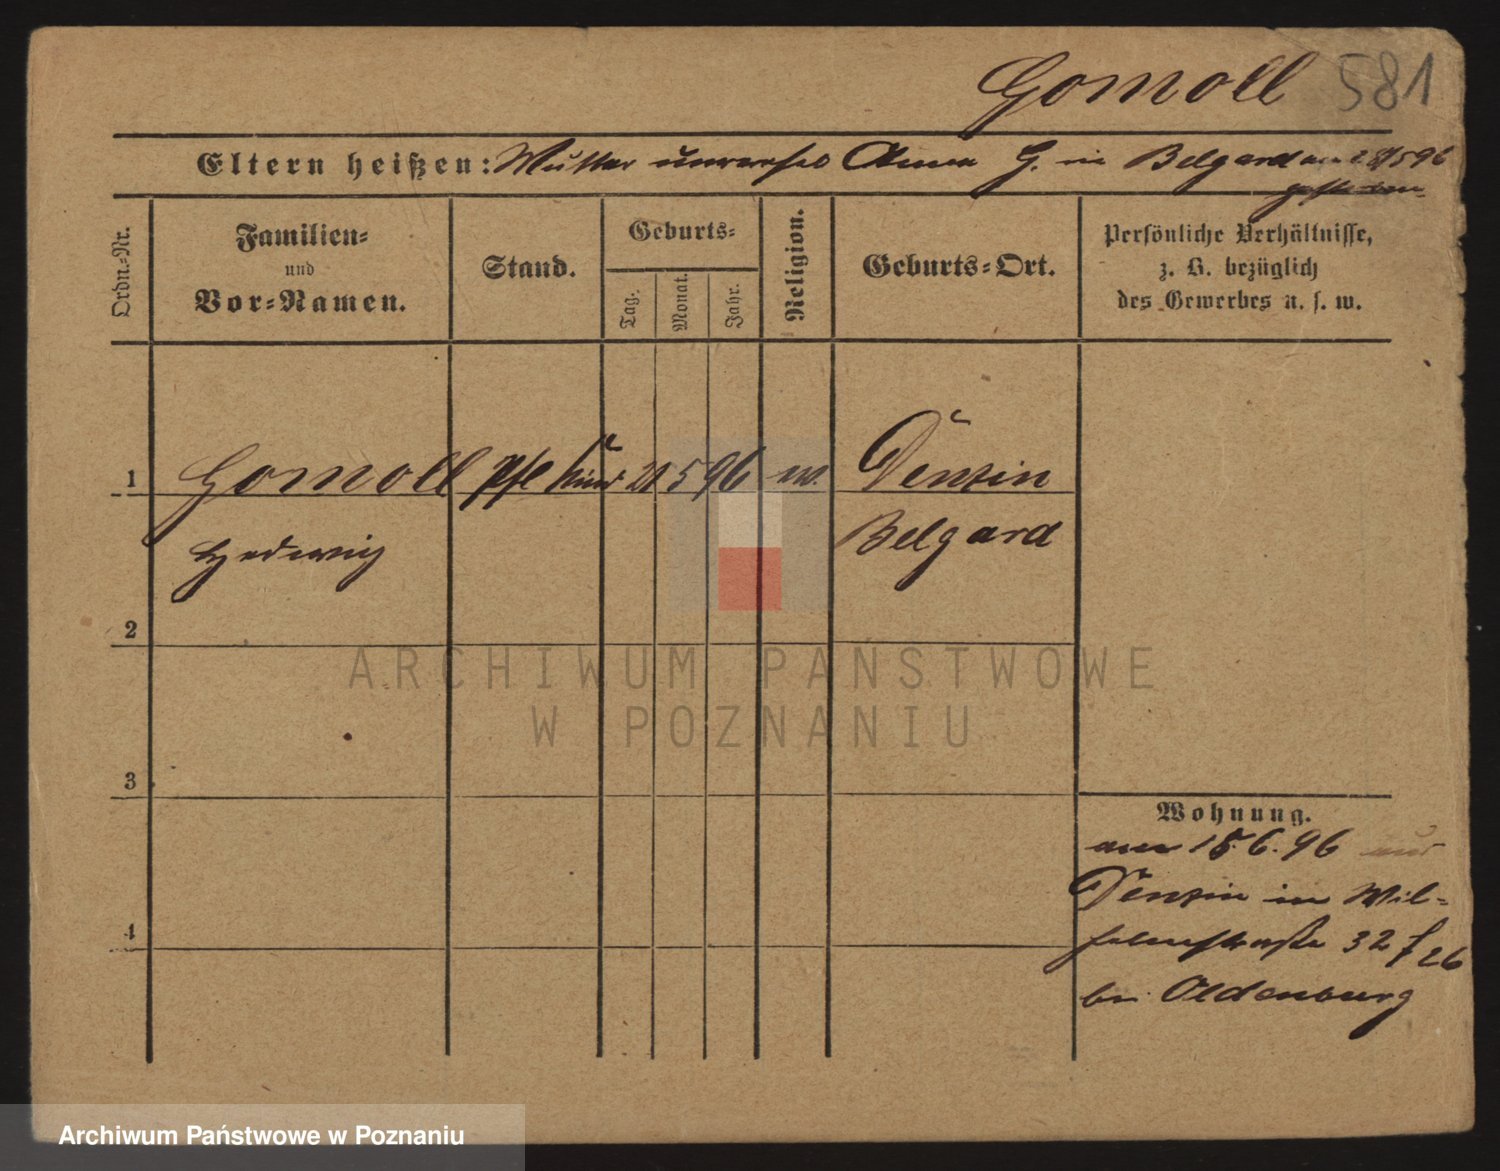 Gomoll 581
Eltern heißen: Mutter unverehel Anna G. in Belgard am 28/5 96
gestorben
Ordn.-Nr.
Familien-
und
Vor-Namen.
Stand.
Geburts-
Tag.
Monat.
Jahr.
Religion.
Geburts-Ort.
Persönliche Verhältnisse,
z. B. bezüglich
des Gewerbes u. s. w.
1 Gomoll Pfl Kind 21 5 96 ev. Denzin
Hedewig Belgard
2
3
4
Wohnung.
am 15.6.96 aus
Denzin in Wil-
helmstraße 32 f 26
bei Oldenburg
ARCHIWUM PAŃSTWOWE
W POZNANIU
Archiwum Państwowe w Poznaniu